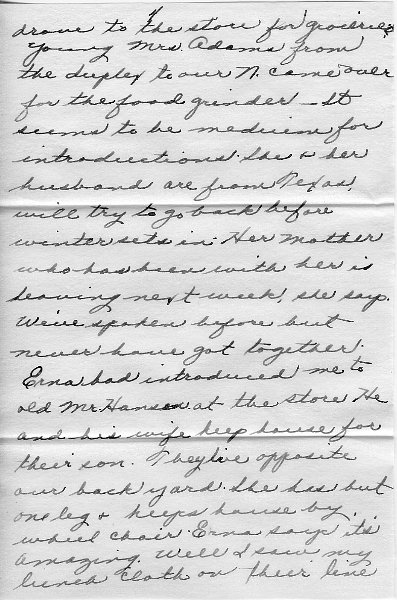 drove to the store for groceries
Young Mrs Adams from
the duplex to our N. came over
for the food grinder - It
seems to be medium for
introductions. She & her
husband are from Texas,
will try to go back before
winter sets in. Her mother
who has been with her is
leaving next week, she says.
We've spoken before but
never have got together.
Erna had introduced me to
old Mr. Hansen at the store He
and his wife keep house for
their son. They live opposite
our back yard. She has but
one leg & keeps house by
wheel chair. Erna says it's
amazing. Well I saw my
lunch cloth on their line